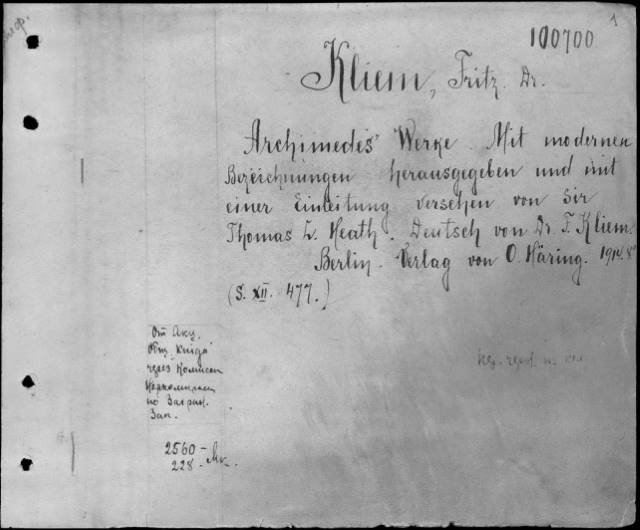 1
100700
Kliem, Fritz. Dr.
Archimedes' Werke. Mit modernen
Bezeichnungen herausgegeben und mit
einer Einleitung versehen von Sir
Thomas L. Heath. Deutsch von Dr. F. Kliem.
Berlin. Verlag von O. Häring. 1914. 8°
(S. XII. 477.)
От Акц.
Общ. "Книга"
через Комисси
по Загран.
Зак.
2560 –
228 –